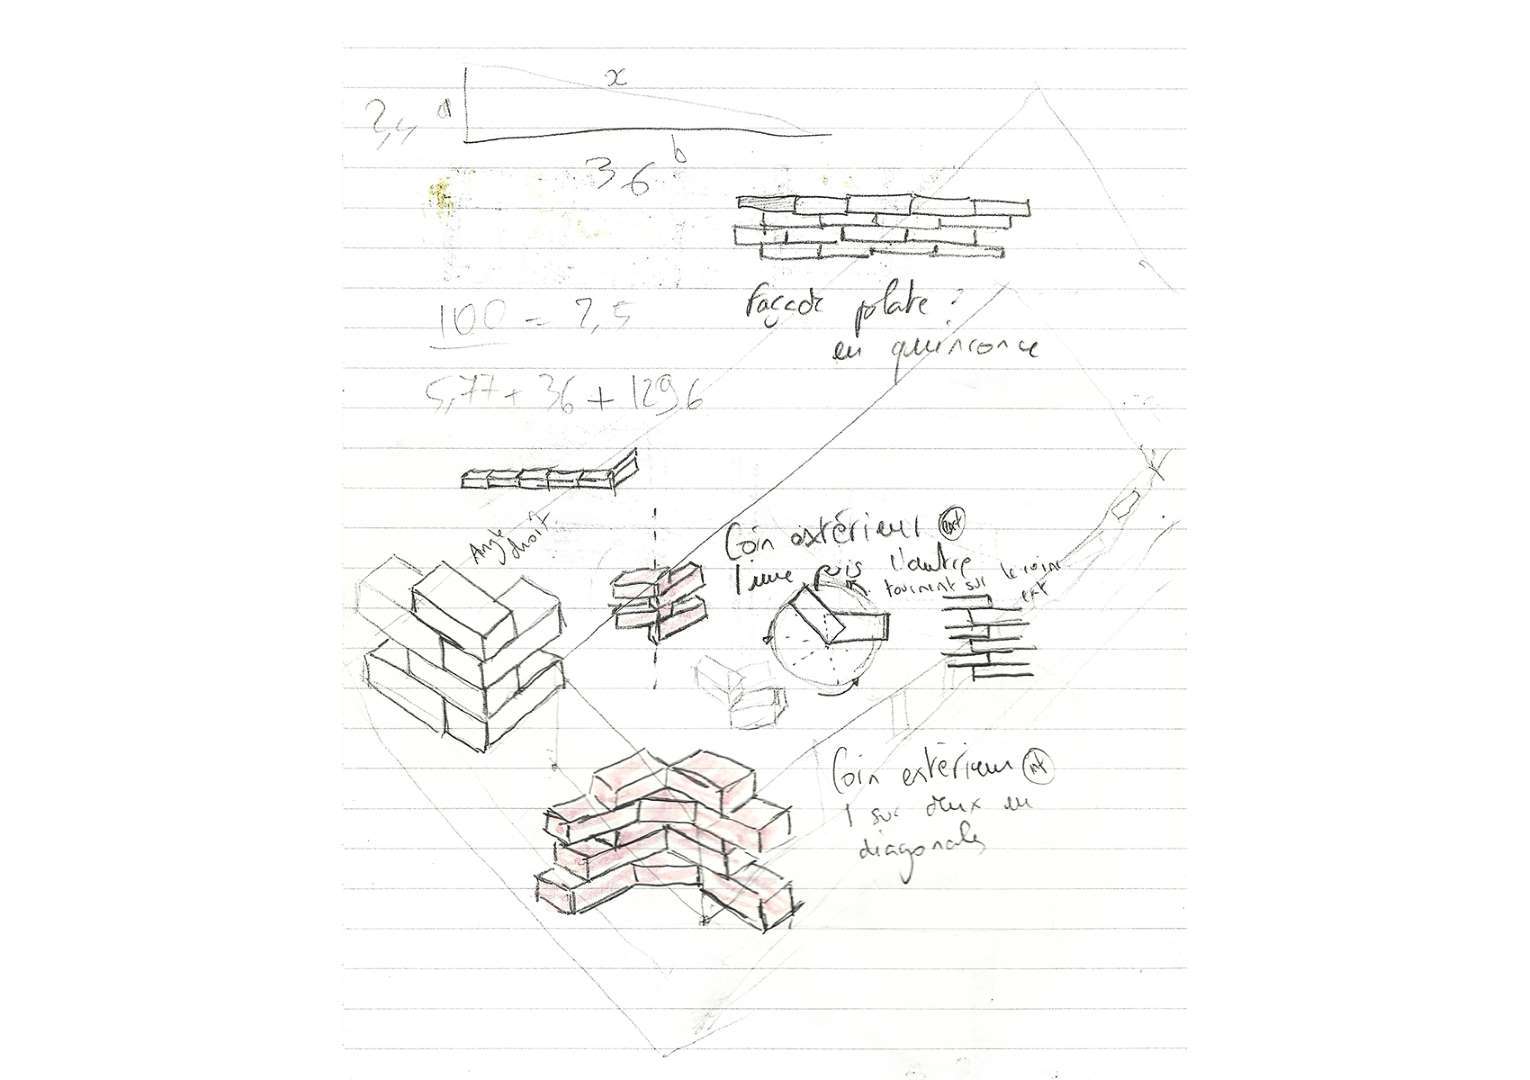 x
a
2,4
b
36
Façade plate :
en quinconce
100 = 2,5
5,77 + 36 + 1296
Angle
droit
Coin extérieur ext
1 une puis l'autre
tournent sur le coin
ext
Coin extérieur int
1 sur deux en
diagonales